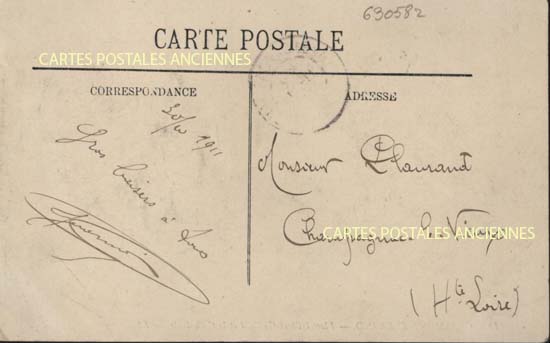 630582
CARTE POSTALE
CARTES POSTALES ANCIENNES
CORRESPONDANCE
ADRESSE
30/10 1911
Gros baisers à tous
Monsieur Plaurand
Champagnac le Vieux
CARTES POSTALES ANCIENNES
(Hte Loire)